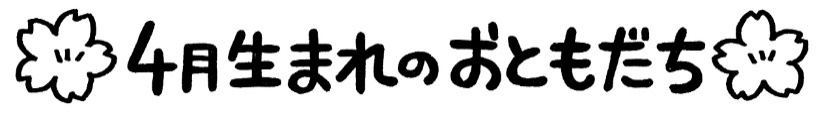 4月生まれのおともだち